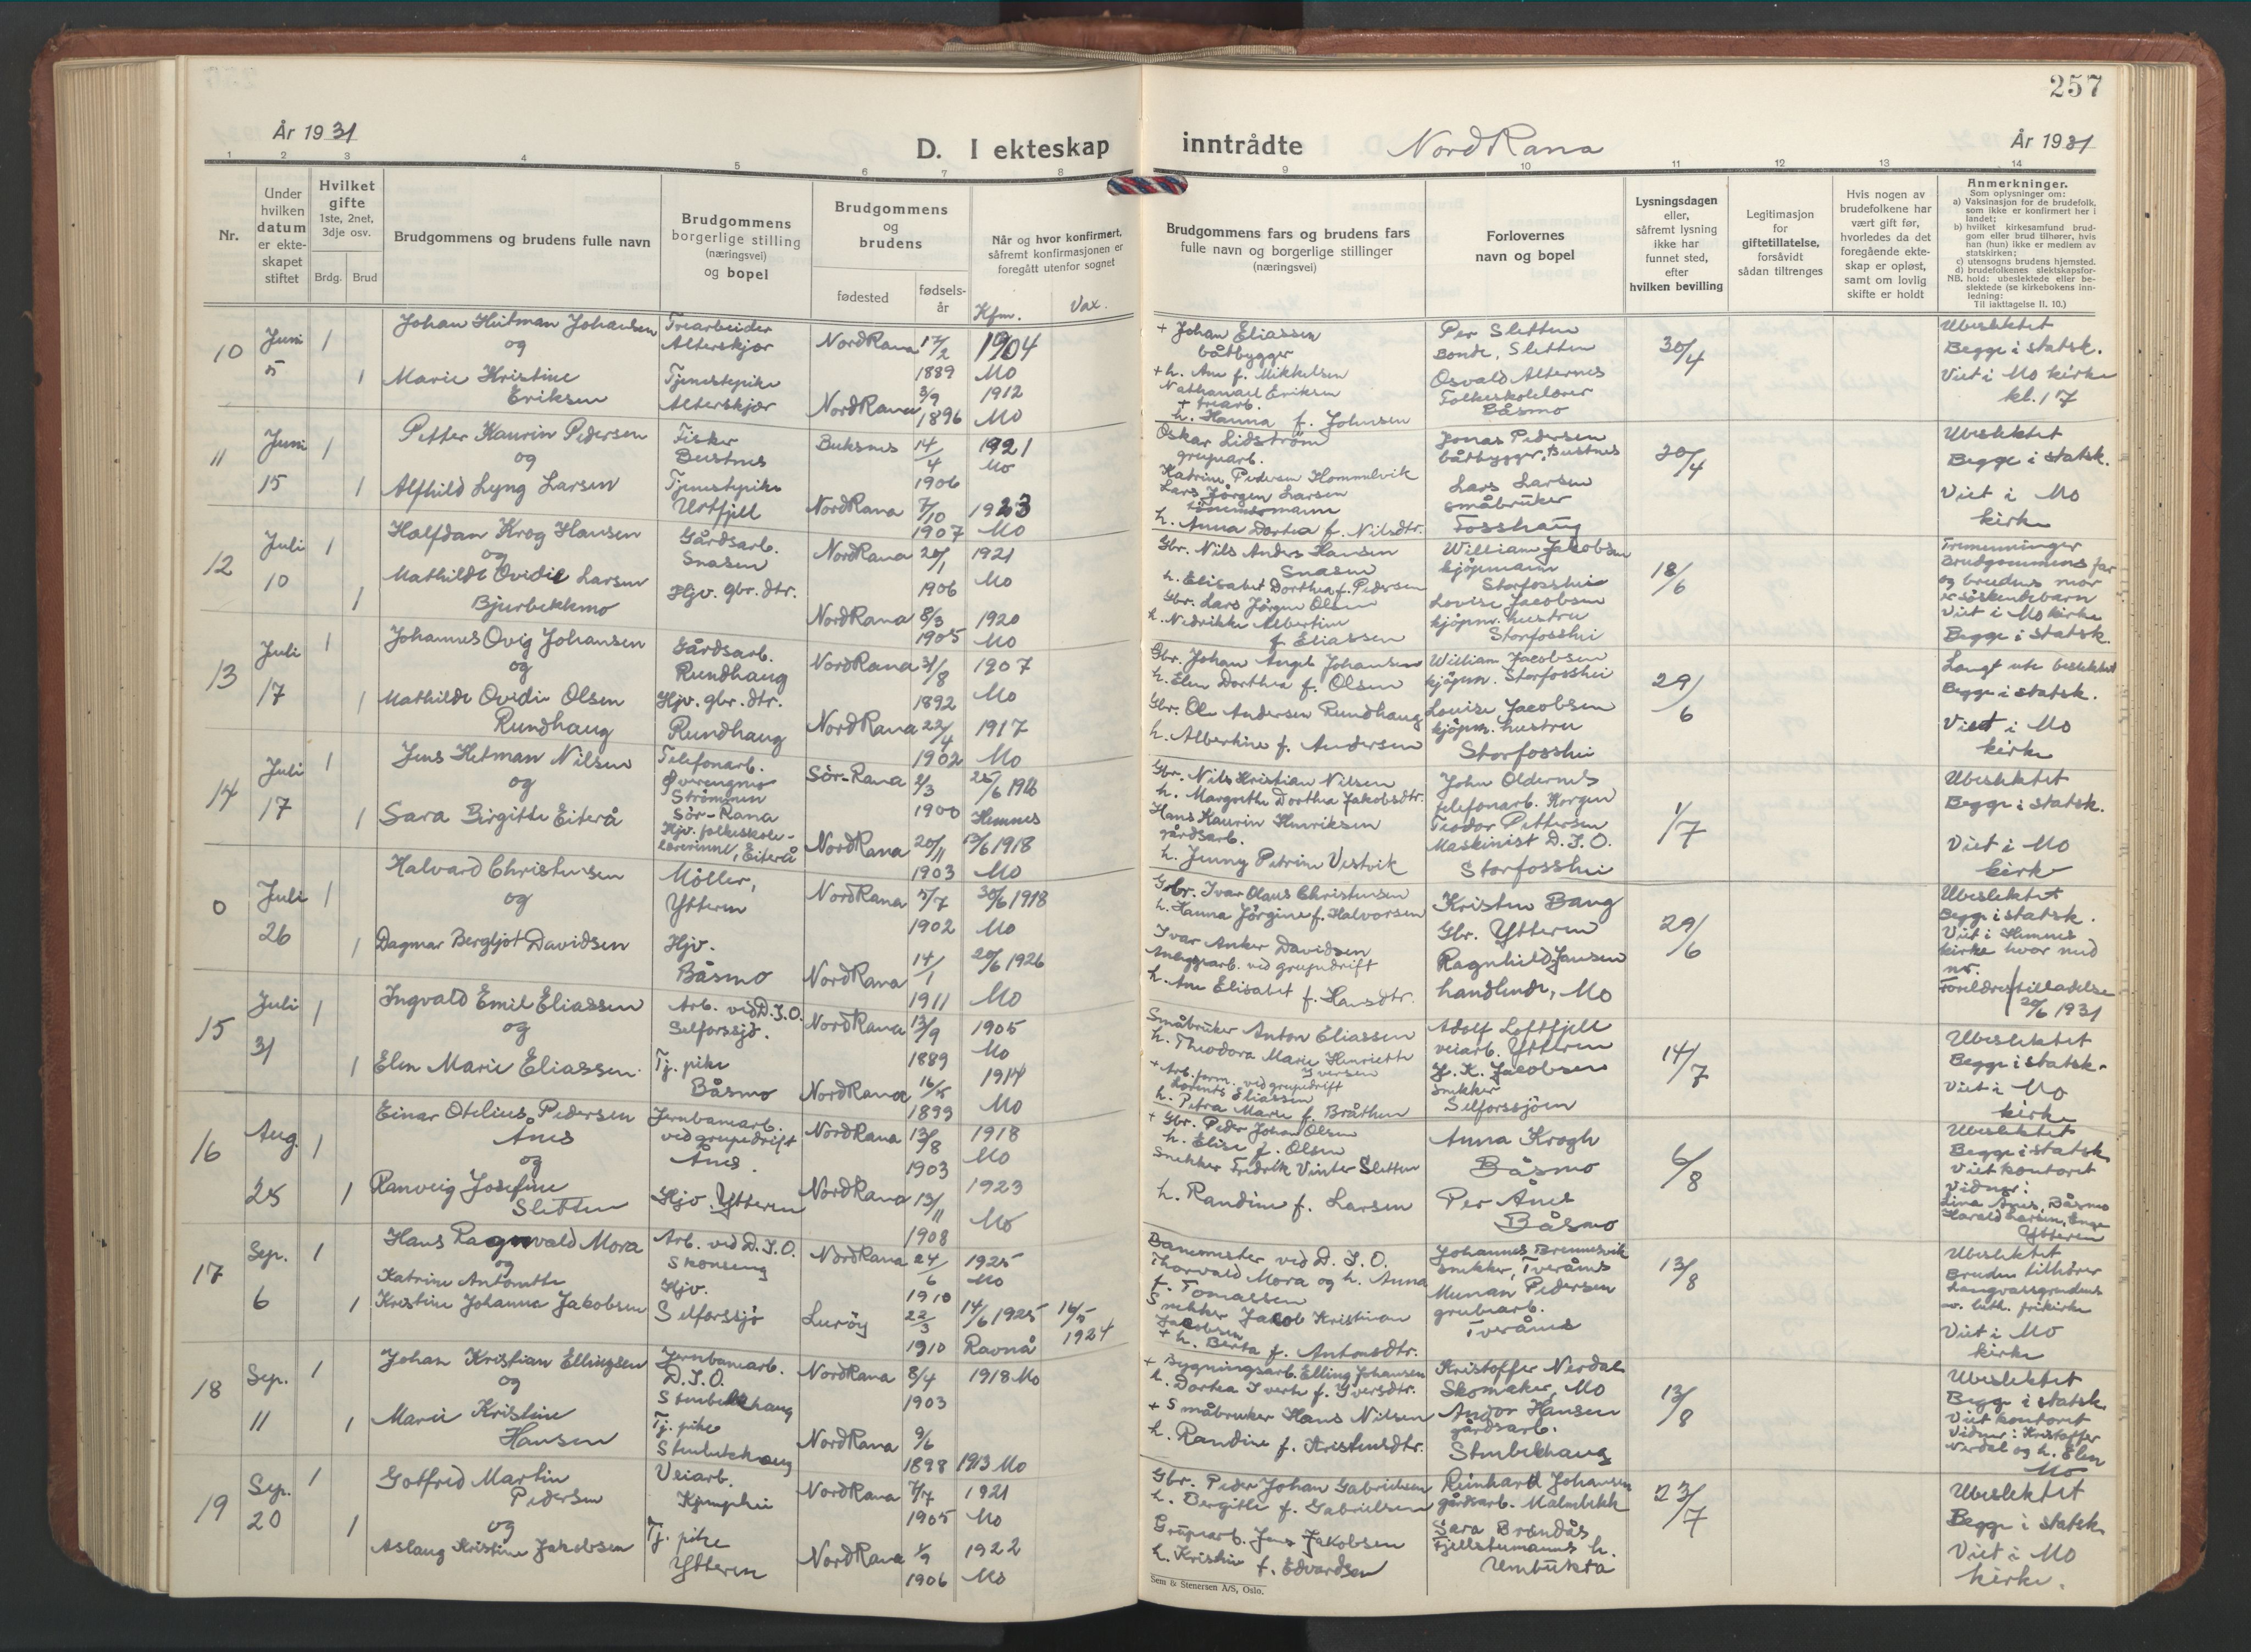 257
År 1931
D. I ekteskap inntrådte
Nord Rana
År 1931
1 2 3 4 5 6 7 8 9 10 11 12 13 14
Nr.
Under hvilken datum er ekteskapet stiftet
Hvilket gifte 1ste, 2net, 3dje osv.
Brdg. Brud
Brudgommens og brudens fulle navn
Brudgommens borgerlige stilling (næringsvei) og bopel
Brudgommens og brudens
fødested
fødselsår
Når og hvor konfirmert, såfremt konfirmasjonen er foregått utenfor sognet
Kfm. Vax.
Brudgommens fars og brudens fars fulle navn og borgerlige stillinger (næringsvei)
Forlovernes navn og bopel
Lysningsdagen eller, såfremt lysning ikke har funnet sted, efter hvilken bevilling
Legitimasjon for giftetillatelse, forsåvidt sådan tiltrenges
Hvis nogen av brudefolkene har vært gift før, hvorledes da det foregående ekteskap er opløst, samt om lovlig skifte er holdt
Anmerkninger.
Som oplysninger om:
a) Vaksinasjon for de brudefolk, som ikke er konfirmert her i landet;
b) hvilket kirkesamfund brudgom eller brud tilhører, hvis han (hun) ikke er medlem av statskirken;
c) utensogns brudens hjemsted.
d) brudefolkenes slektskapsforhold: ubeslektede eller beslektede (se kirkebokens innledning:
NB.
Til iakttagelse II, 10.)
10 Juni 5 1 1
Johan Hitman Johansen
og
Marie Kristine
Eriksen
Trearbeider
Alterskjær
Tjenestepike
Alterskjær
Nord Rana 17/2 1889
Nord Rana 3/9 1896
1904 Mo
1912 Mo
+ Johan Eliassen
båtbygger
+ h. Ane f. Mikkelsen
Nathanael Eriksen
+ trearb.
h. Hanna f. Johnsen
Per Sletten
Bonde, Sletten
Osvald Alternes
Folkeskolelærer
Båsmo
30/4
Ubeslektet
Begge i statsk.
Viet i Mo kirke
kl. 17
11 Juni 15 1 1
Petter Kaurin Pedersen
og
Alfhild Lyng Larsen
Fisker
Bustnes
Tjenestepike
Urtfjell
Buksnes 14/4 1906
Nord Rana 7/10 1907
1921 Mo
1923 Mo
Oskar Lidström
grupearb.
Katrine Pedersen Hommelvik
Lars Jörgen Larsen
h. Anna Dortea f. Nilsdtr.
Jonas Pedersen
båtbygger, Bustnes
Lars Larsen
småbruker
Fosshaug
30/4
Ubeslektet
Begge i statsk.
Viet i Mo
kirke
12 Juli 10 1 1
Halfdan Krog Hansen
og
Mathilde Ovidie Larsen
Bjurbekkmo
Gårdsarb.
Snasen
Hjv. gbr. dtr.
Nord Rana 20/1 1906
Nord Rana 8/3 1905
1921 Mo
1920 Mo
Gbr. Nils Anders Hansen
Snasen
h. Elisabet Dorthea f. Pedersen
Gbr. Lars Jörgen Olsen
h. Nedrikke Albertine
f. Eliassen
William Jakobsen
kjöpmann
Storfosshei
Lovise Jacobsen
kjöpm. hustru
Storfosshei
18/6
Tremenninger
Brudgommens far
og brudens mor
er söskendebarn
Viet i Mo kirke
Begge i statsk.
13 Juli 17 1 1
Johannes Ovig Johansen
og
Mathilde Ovidie Olsen
Rundhaug
Gårdsarb.
Rundhaug
Hjv. gbr. dtr.
Rundhaug
Nord Rana 31/8 1892
Nord Rana 22/4 1902
1907 Mo
1917 Mo
Gbr. Johan Angel Johansen
h. Elen Dorthea f. Olsen
Gbr. Ole Andersen Rundhaug
h. Albertine f. Andersen
William Jacobsen
kjöpm. Storfosshei
Louise Jacobsen
kjöpm. hustru
Storfosshei
29/6
Langt ute beslektet
Begge i statsk.
Viet i Mo
kirke
14 Juli 17 1 1
Jens Hetman Nilsen
og
Sara Birgitte Eiterå
Telefonarb.
Strömmen
Sör-Rana
Hjv. folkeskole-
lærerinne, Eiterå
Sör-Rana 2/3 1900
Nord Rana 20/11 1903
25/6 1916 Hemnes
1918 Mo
Gbr. Nils Kristian Nilsen
h. Margrethe Dorthea Jakobsdtr.
Hans Kaurin Henriksen
gårdsarb.
h. Jenny Petrine Vestvik
John Oldernes
telefonarb. Korgen
Teodor Pettersen
Maskinist D. I. O.
Storfosshei
1/7
Ubeslektet
Begge i statsk.
Viet i Mo
kirke
0 Juli 26 1 1
Halvard Christensen
og
Dagmar Bergljot Davidsen
Möller,
Ytteren
Hjv.
Båsmo
Nord Rana 5/7 1902
Nord Rana 14/1 1911
30/6 1918 Mo
20/6 1926 Mo
Gbr. Ivar Olaus Christensen
h. Hanna Jörgine f. Halvorsen
Ivar Anker Davidsen
Anleggsarb. ved grupedrift
h. Ane Elisabet f. Hansdtr.
Kristen Bang
Gbr. Ytteren
Ragnhild Jansen
handlende, Mo
29/6
Ubeslektet
Begge i statsk.
Viet i Hemnes
kirke hvor med
nr.
Foreldrestilladelse
20/6 1931
15 Juli 31 1 1
Ingvald Emil Eliassen
og
Elen Marie Eliassen
Arb. ved D. I. O.
Selforssjö.
Tj. pike
Båsmo
Nord Rana 13/9 1889
Nord Rana 16/5 1899
1905 Mo
1914 Mo
Småbruker Anton Eliassen
h. Theodora Marie Henriette
Iversen
+ Arb. form. ved grupedrift
Lorents Eliassen
h. Petra Marie f. Bråthen
Adolf Loftfjell
veiarb. Ytteren
J. K. Jacobsen
snekker
Selforssjöen
14/7
Ubeslektet
Begge i statsk.
Viet i Mo
kirke
16 Aug. 25 1 1
Einar Otelius Pedersen
Ånes
og
Ranveig Josefine
Sletten
Jernbanearb.
ved grupedrift
Ånes.
Hjv. Ytteren
Nord Rana 13/8 1903
Nord Rana 13/11 1908
1918 Mo
1923 Mo
+ Gbr. Peder Johan Olsen
h. Elise f. Olsen
Snekker Fredrik Vinter Sletten
h. Randine f. Larsen
Anna Krogh
Båsmo
Per Ånes
Båsmo
6/8
Ubeslektet
Begge i statsk.
Viet kontoret
Vidner:
Lina Ånes, Båsmo
Harald Larsen,
Ytteren
17 Sep. 6 1 1
Hans Ragnvald Mora
og
Katrine Antonette
Kristine Johanna Jakobsen
Arb. ved D. I. O.
Skonseng
Hjv.
Selforssjö
Nord Rana 24/6 1910
Luröy 22/3 1910
1925 Mo
14/6 1925 Ravnå
16/5 1924
Banemester ved D. I. O.
Thorvald Mora og h. Anna
f. Tomassen
Snekker Jakob Kristian
Jacobsen
+ h. Berta f. Antonsdtr.
Johannes Brennesvik
snekker, Tverånes
Munan Pedersen
grubearb.
Tverånes
13/8
Ubeslektet
Bruden tilhörer
Langvassgrendens
ev. luth. frikirke
Viet i Mo
kirke
18 Sep. 11 1 1
Johan Kristian Ellingsen
og
Marie Kristine
Hansen
Jernbanearb.
D. I. O.
Stenbekkhaug
Tj. pike
Stenbekkhaug
Nord Rana 8/4 1903
Nord Rana 9/6 1898
1918 Mo
1913 Mo
+ Bygningsarb. Elling Johansen
h. Dortea Iverte f. Iversdtr.
+ Småbruker Hans Nilsen
h. Randine f. Kristensdtr.
Kristoffer Nerdal
Skomaker, Mo
Andor Hansen
gårdsarb.
Stenbekhaug
13/8
Ubeslektet
Begge i statsk.
Viet kontoret
Vidner: Kristoffer
Nerdal og h. Elen
Mo
19 Sep. 20 1 1
Gotfred Martin
Pedersen
og
Aslaug Kristine Jakobsen
Veiarb.
Kjemphei
Tj. pike
Ytteren
Nord Rana 7/7 1905
Nord Rana 1/9 1906
1921 Mo
1922 Mo
Gbr. Peder Johan Gabrielsen
h. Bergitte f. Gabrielsen
Grupearb. Jens Jakobsen
h. Kristine f. Edvardsen
Reinhard Johansen
gårdsarb. Malmbekk
Sara Brendås
Fjellstumanns h.
Umbukta
23/7
Ubeslektet
Begge i statsk.
Viet i Mo
kirke.
Sem & Stenersen A/S, Oslo.